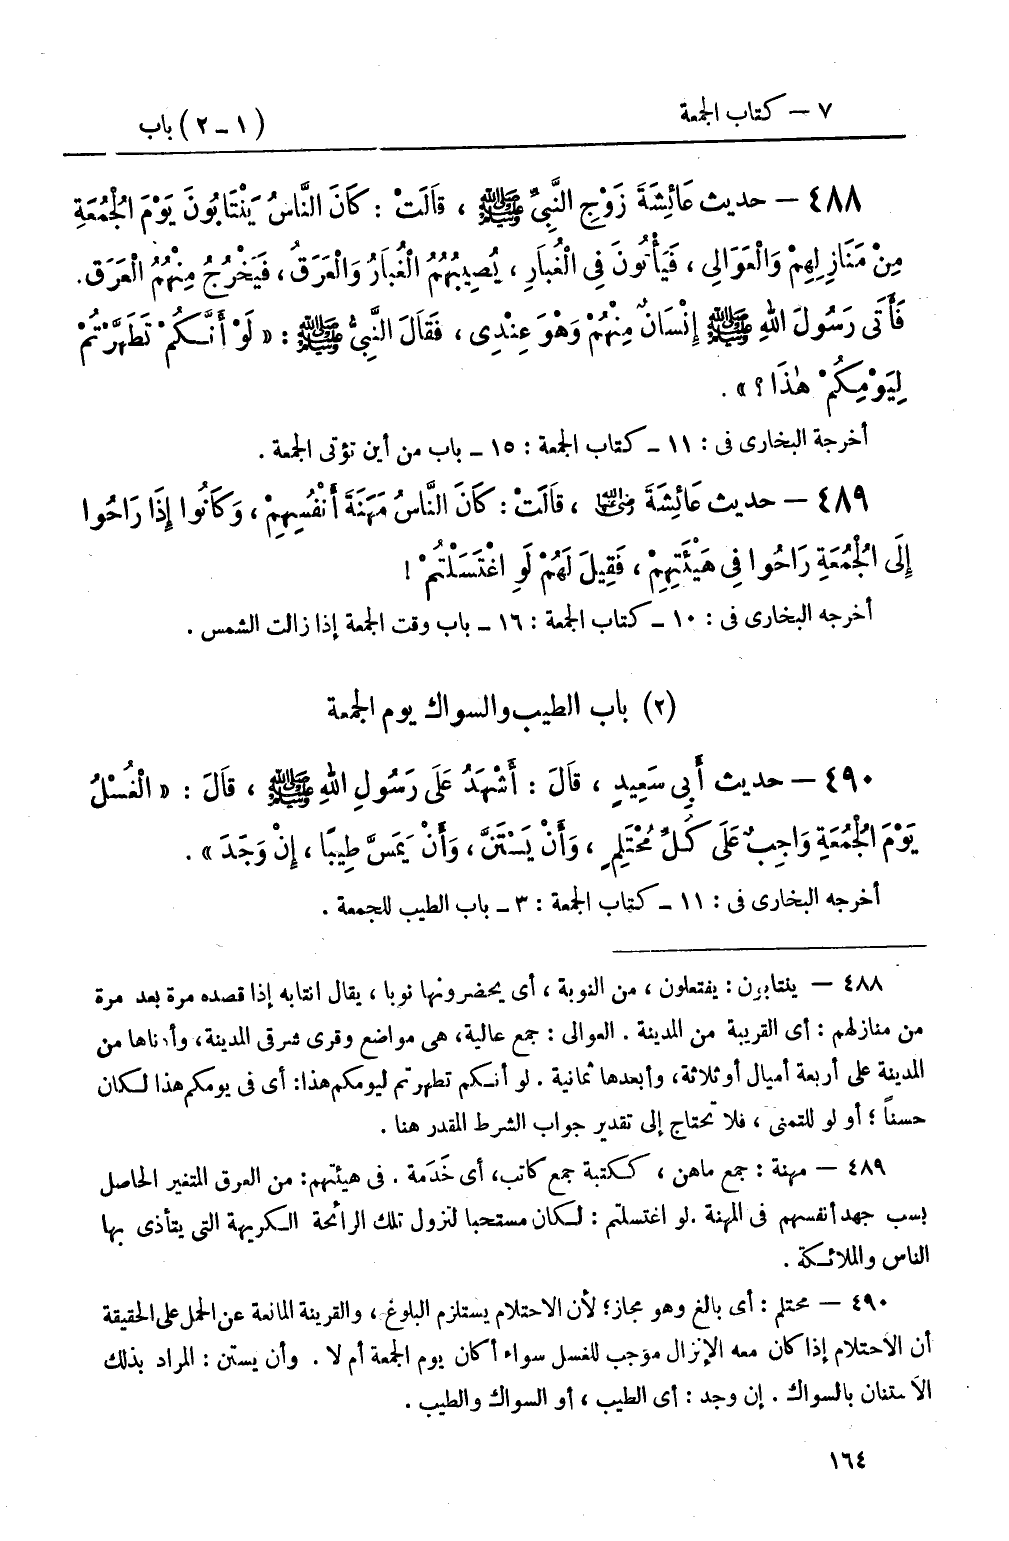 ٧ — كتاب الجمعة
(١ - ٢) باب
٤٨٨ — حديث عَائِشَةَ زَوْجِ النَّبِيِّ ﷺ ، قَالَتْ : كَانَ النَّاسُ يَنْتَابُونَ يَوْمَ الْجُمُعَةِ
مِنْ مَنَازِلِهِمْ وَالْعَوَالِى ، فَيَأْتُونَ فِى الْغُبَارِ ، يُصِيبُهُمُ الْغُبَارُ وَالْعَرَقُ ، فَيَخْرُجُ مِنْهُمُ الْعَرَق .
فَأَتَى رَسُولَ اللهِ ﷺ إِنْسَانٌ مِنْهُمْ وَهْوَ عِنْدِى ، فَقَالَ النَّبِىُّ ﷺ : « لَوْ أَنَّكُمْ تَطَهَّرْتُمْ
لِيَوْمِكُمْ هٰذَا ؟ » .
أخرجة البخارى فى : ١١ - كتاب الجمعة : ١٥ - باب من أين تؤتى الجمعة .
٤٨٩ — حديث عَائِشَةَ رضي الله عنها ، قَالَتْ : كَانَ النَّاسُ مَهَنَةَ أَنْفُسِهِمْ ، وَكَانُوا إِذَا رَاحُوا
إِلَى الْجُمُعَةِ رَاحُوا فِى هَيْئَتِهِمْ ، فَقِيلَ لَهُمْ لَوِ اغْتَسَلْتُمْ !
أخرجه البخارى فى : ١٠ - كتاب الجمعة : ١٦ - باب وقت الجمعة إذا زالت الشمس .
(٢) باب الطيب والسواك يوم الجمعة
٤٩٠ — حديث أَبِى سَعِيدٍ ، قَالَ : أَشْهَدُ عَلَى رَسُولِ اللهِ ﷺ ، قَالَ : « الْغُسْلُ
يَوْمَ الْجُمُعَةِ وَاجِبٌ عَلَى كُلِّ مُحْتَلِمٍ ، وَأَنْ يَسْتَنَّ ، وَأَنْ يَمَسَّ طِيبًا ، إِنْ وَجَدَ » .
أخرجه البخارى فى : ١١ - كتاب الجمعة : ٣ - باب الطيب للجمعة .
٤٨٨ — ينتابون : يفتعلون ، من النوبة ، أى يحضرونها نوبا ، يقال انتابه إذا قصده مرة بعد مرة
من منازلهم : أى القريبة من المدينة . العوالى : جمع عالية، هى مواضع وقرى شرقى المدينة، وأدناها من
المدينة على أربعة أميال أو ثلاثة، وأبعدها ثمانية . لو أنكم تطهرتم ليومكم هذا: أى فى يومكم هذا لكان
حسناً ؛ أو لو للتمنى ، فلا تحتاج إلى تقدير جواب الشرط المقدر هنا .
٤٨٩ — مهنة : جمع ماهن ، ككتبة جمع كاتب، أى خَدَمة . فى هيئتهم: من العرق المتغير الحاصل
بسب جهد أنفسهم فى المهنة . لو اغتسلتم : لكان مستحبا لتزول تلك الرائحة الكريهة التى يتأذى بها
الناس والملائكة .
٤٩٠ — محتلم : أى بالغ وهو مجاز؛ لأن الاحتلام يستلزم البلوغ ، والقرينة المانعة عن الحمل على الحقيقة
أن الاحتلام إذا كان معه الإنزال موجب للغسل سواء أكان يوم الجمعة أم لا . وأن يستن : المراد بذلك
الاستنان بالسواك . إن وجد : أى الطيب ، أو السواك والطيب .
١٦٤